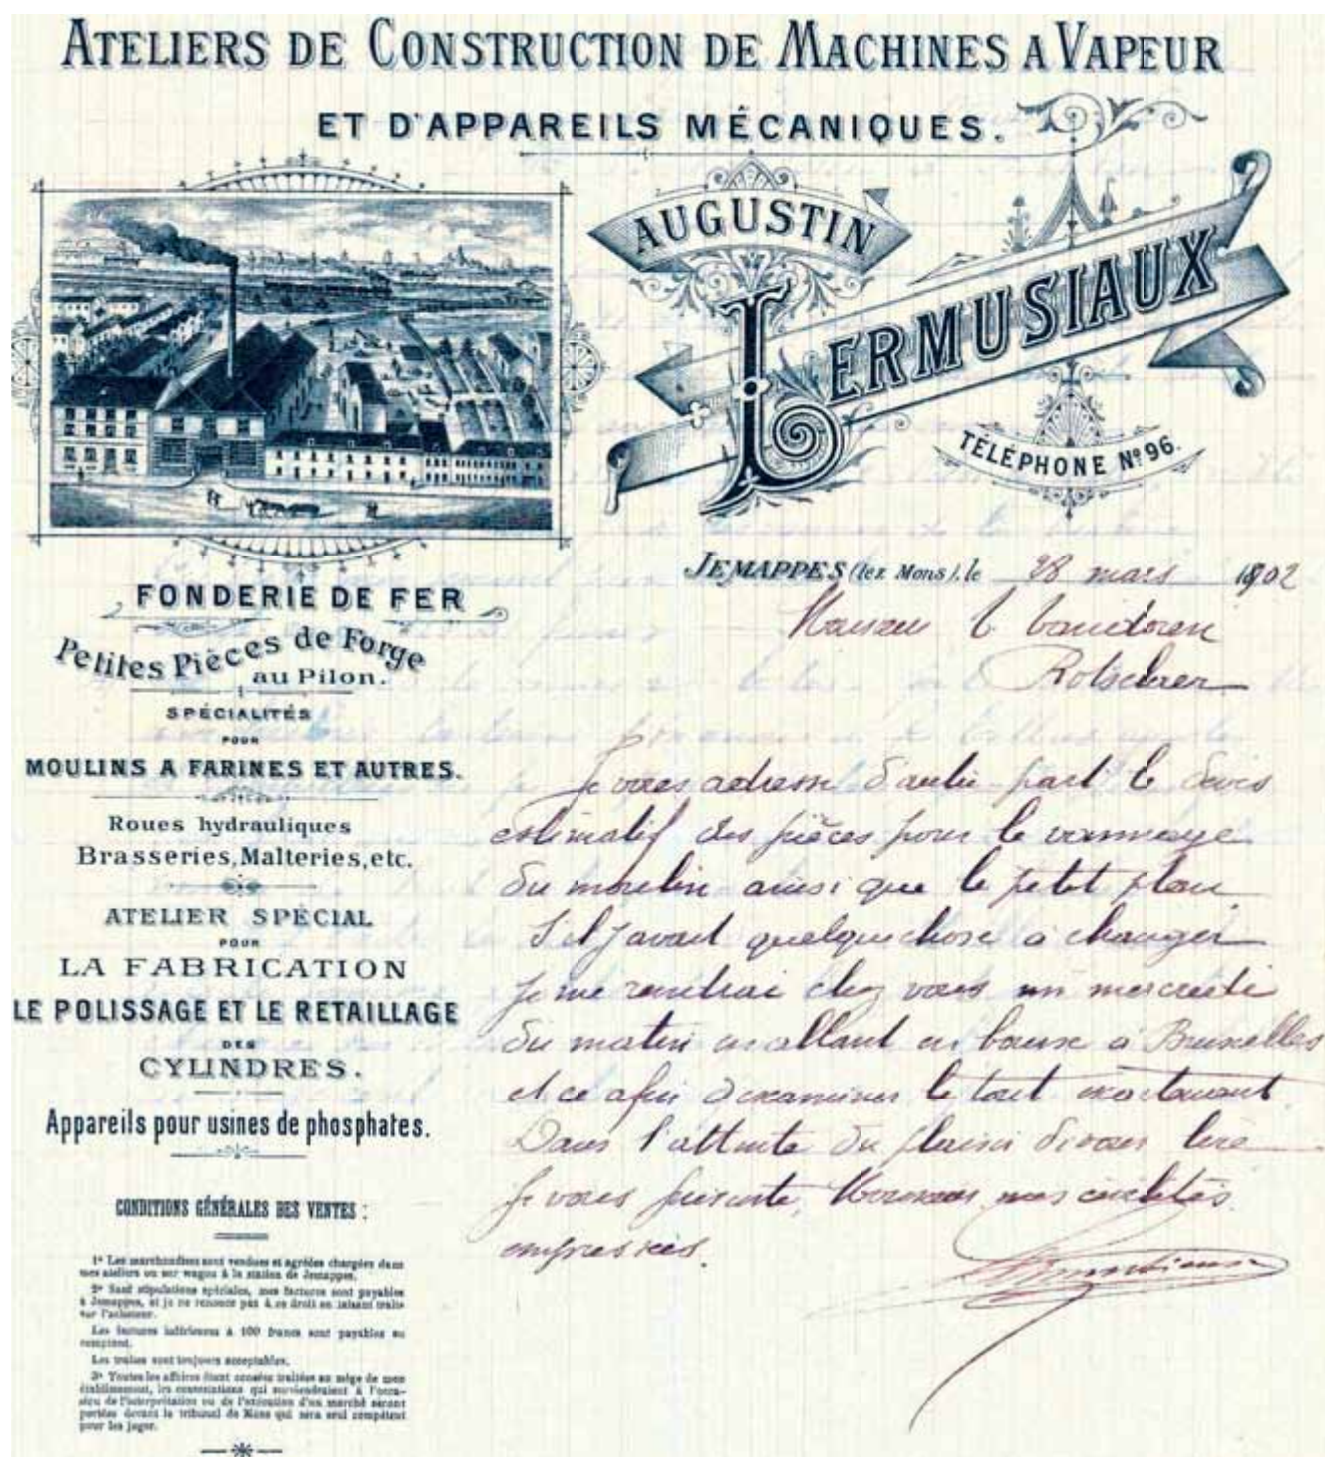 ATELIERS DE CONSTRUCTION DE MACHINES A VAPEUR
ET D'APPAREILS MÉCANIQUES.
AUGUSTIN
LERMUSIAUX
TÉLÉPHONE Nº 96.
JEMAPPES (lez Mons), le 28 mars 1902
Monsieur
FONDERIE DE FER
Petites Pièces de Forge
au Pilon.
SPÉCIALITÉS
POUR
MOULINS A FARINES ET AUTRES.
Roues hydrauliques
Brasseries, Malteries, etc.
ATELIER SPÉCIAL
POUR
LA FABRICATION
LE POLISSAGE ET LE RETAILLAGE
DES
CYLINDRES.
Appareils pour usines de phosphates.
CONDITIONS GÉNÉRALES DES VENTES :
1º Les marchandises sont vendues et agréées chargées dans
mes ateliers ou sur wagon à la station de Jemappes.
2º Sauf stipulations spéciales, mes factures sont payables
à Jemappes, et je ne renonce pas à ce droit en faisant traite
sur l'acheteur.
Les factures inférieures à 100 francs sont payables au
comptant.
Les traites sont toujours acceptables.
3º Toutes les affaires étant censées traitées au siège de mon
établissement, les contestations qui surviendraient à l'occa-
sion de l'interprétation ou de l'exécution d'un marché seront
portées devant le tribunal de Mons qui sera seul compétent
pour les juger.
Je vous adresse d'autre part le devis
estimatif des pièces pour le vannage
du moulin ainsi que le petit plan
S'il y avait quelque chose à changer
je me rendrai chez vous un mercredi
du matin en allant en bourse à Bruxelles
et ce afin d'examiner le tout exactement
Dans l'attente du plaisir de vous lire
je vous présente, Monsieur, mes civilités
empressées.